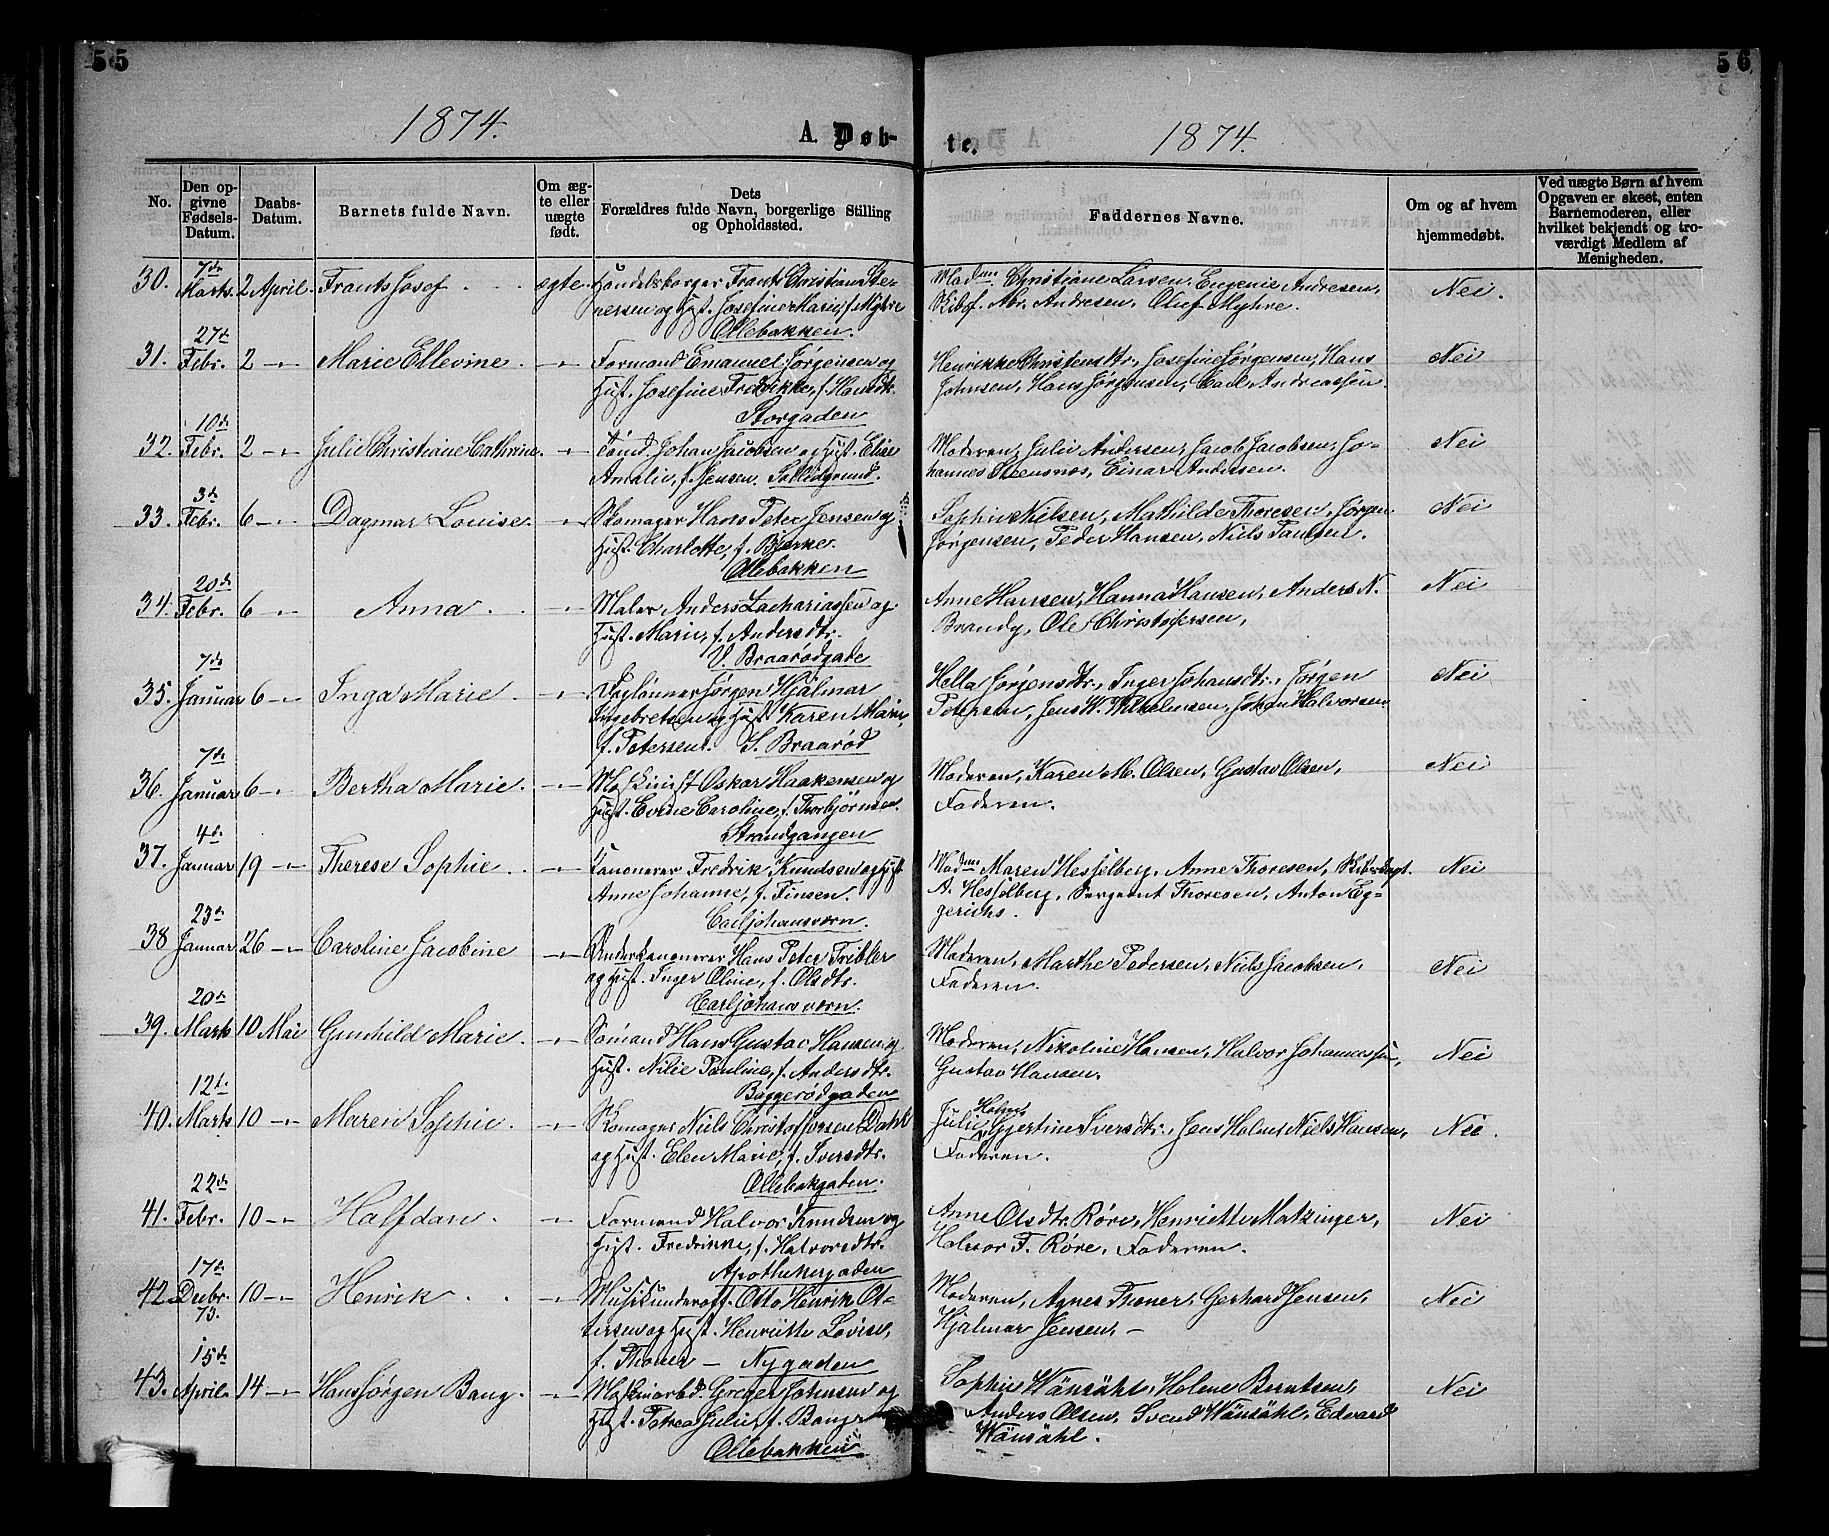 55
56
1874.
A. Døb-
te.
1874.
No.
Den op-
givne
Fødsels-
Datum.
Daabs-
Datum.
Barnets fulde Navn.
Om æg-
te eller
uægte
født.
Dets
Forældres fulde Navn, borgerlige Stilling
og Opholdssted.
Faddernes Navne.
Om og af hvem
hjemmedøbt.
Ved uægte Børn af hvem
Opgaven er skeet, enten
Barnemoderen, eller
hvilket bekjendt og tro-
værdigt Medlem af
Menigheden.
30. 7de Marts. 2 April. Frants Josef ægte
Handelsborger Frants Christian Ste-
nersen og Hust. Josefine Marie, f. Myhre
Ollebakken.
Madmm Christiane Larsen, Eugenie Andresen,
Skibsf. Abr. Andresen, Oluf Myhre.
Nei.
31. 27de Febr. 2 -"- Marie Ellevine. -"-
Formand Emanuel Jørgensen og
Hust. Josefine Fredrikke, f. Hansdtr.
Storgaden
Henrikke Christensdtr., Josefine Jørgensen, Hans
Johnsen, Hans Jørgensen, Carl Andreassen.
Nei
32. 10de Febr. 2 -"- Julie Christiane Cathrine. -"-
Tømd. Johan Jacobsen og Hust. Elise
Amalie, f. Jensen.
Moderen, Julie Andersen, Jacob Jacobsen, Jo-
hannes Steensnæs, Einar Andersen.
Nei
33. 3de Febr. 6 -"- Dagmar Louise. -"-
Skomager Hans Peter Jensen og
Hust. Charlotte, f. Bjerke.
Ollebakken
Sophie Nielsen, Mathilde Thoresen, Jørgen
Jørgensen, Peder Hansen, Niels Paulsen.
Nei
34. 20de Febr. 6 -"- Anna. -"-
Maler Anders Zachariassen og
Hust. Marie, f. Andersdtr.
V. Braarødgade
Anne Hansen, Hanna Hansen, Anders N.
Brandy, Ole Christofersen,
Nei
35. 7de Januar 6 -"- Inga Marie. -"-
Daglønner Jørgen Hjalmar
Ingebretsen og Hust. Karen Marie,
f. Petersen. S. Braarød
Hella Jørgensdtr., Inger Johansdtr., Jørgen
Petersen, Jens W. Wilhelmsen, Johan Halvorsen
Nei
36. 7de Januar 6 -"- Bertha Marie. -"-
Maskinist Oskar Haakensen og
Hust. Evine Caroline, f. Thorbjørnsen.
Strandgangen
Moderen, Karen M. Olsen, Gustav Olsen,
Faderen.
Nei
37. 4de Januar 19 -"- Therese Sophie. -"-
Kanonerer Fredrik Knudsen og Hust
Anne Johanne, f. Finsen.
Carljohansværn.
Madmm Maren Hesselberg, Anne Thoresen,
A. Hesselberg, Sergeant Thoresen, Anton Eg-
gerichs.
Nei
38 23de Januar 26 -"- Caroline Jacobine -"-
Underkanonerer Hans Peter Tribler
og Hust. Inger Oline, f. Olsdtr.
Carljohansværn.
Moderen, Marthe Pedersen, Niels Jacobsen,
Faderen.
Nei
39. 20de Marts 10 Mai Gunhild Marie. -"-
Sømand Hans Gustav Hansen og
Hust. Nilie Pauline, f. Andersdtr.
Baggerødgaden
Moderen, Nikoline Hansen, Halvor Johannessen,
Gustav Hansen.
Nei
40. 12te Marts 10 -"- Maren Sophie. -"-
Skomager Niels Christoffersen Dahl
og Hust. Elen Marie, f. Iversdtr.
Ollebakgaden.
Julie Holms, Gjertine Iversdtr., Jens Holm, Niels Hansen,
Faderen.
Nei.
41. 22de Febr. 10 -"- Halfdan. -"-
Formand Halvor Knudsen og
Hust. Fredrikke, f. Halvorsdtr.
Apothekergaden
Anne Olsdtr. Røre, Henriette Matzinger,
Halvor F. Røre, Faderen.
Nei
42. 17de Decbr. 73. 10 -"- Henrik. -"-
Musikunderoff. Otto Henrik Ot-
tersen og Hust. Henriette Lovise,
f. Thoner - Nygaden
Moderen, Agnes Thoner, Gerhard Jensen,
Hjalmar Jensen, -
Nei
43. 15de April. 14 -"- Hans Jørgen Bang. -"-
Maskinarbd. Greger Johnsen og
Hust. Petrea Julie, f. Bang.
Ollebakken
Sophie Wänsähl, Helene Berntsen,
Anders Olsen, Svend Wänsähl, Edvard
Wänsähl.
Nei